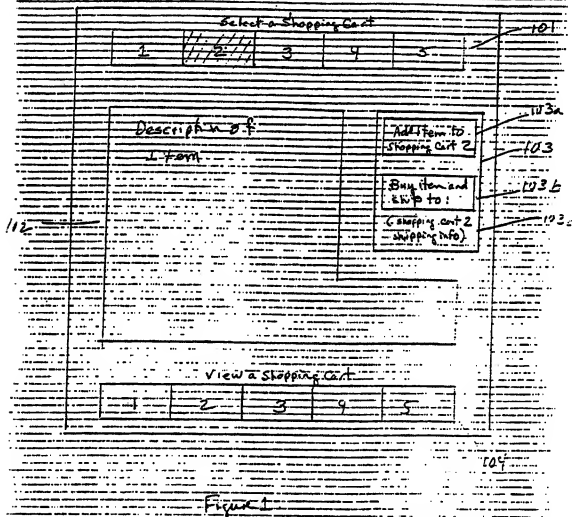 Select a Shopping Cart
101
1 2 3 4 5
Description of
Item
103a
Add item to
shopping cart 2
103
Buy item and
ship to:
103b
(shopping cart 2
shipping info)
103c
112
View a Shopping Cart
1 2 3 4 5
104
Figure 1